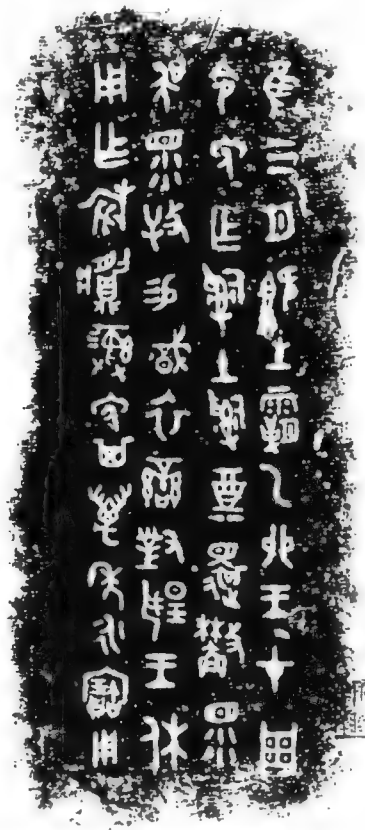 隹三月既生霸乙卯王才周
令免乍𤔲土𤔲奠還𣙙眔
吳眔牧易戠衣䜌對揚王休
用乍旅𩱧彝免其萬年永寶用